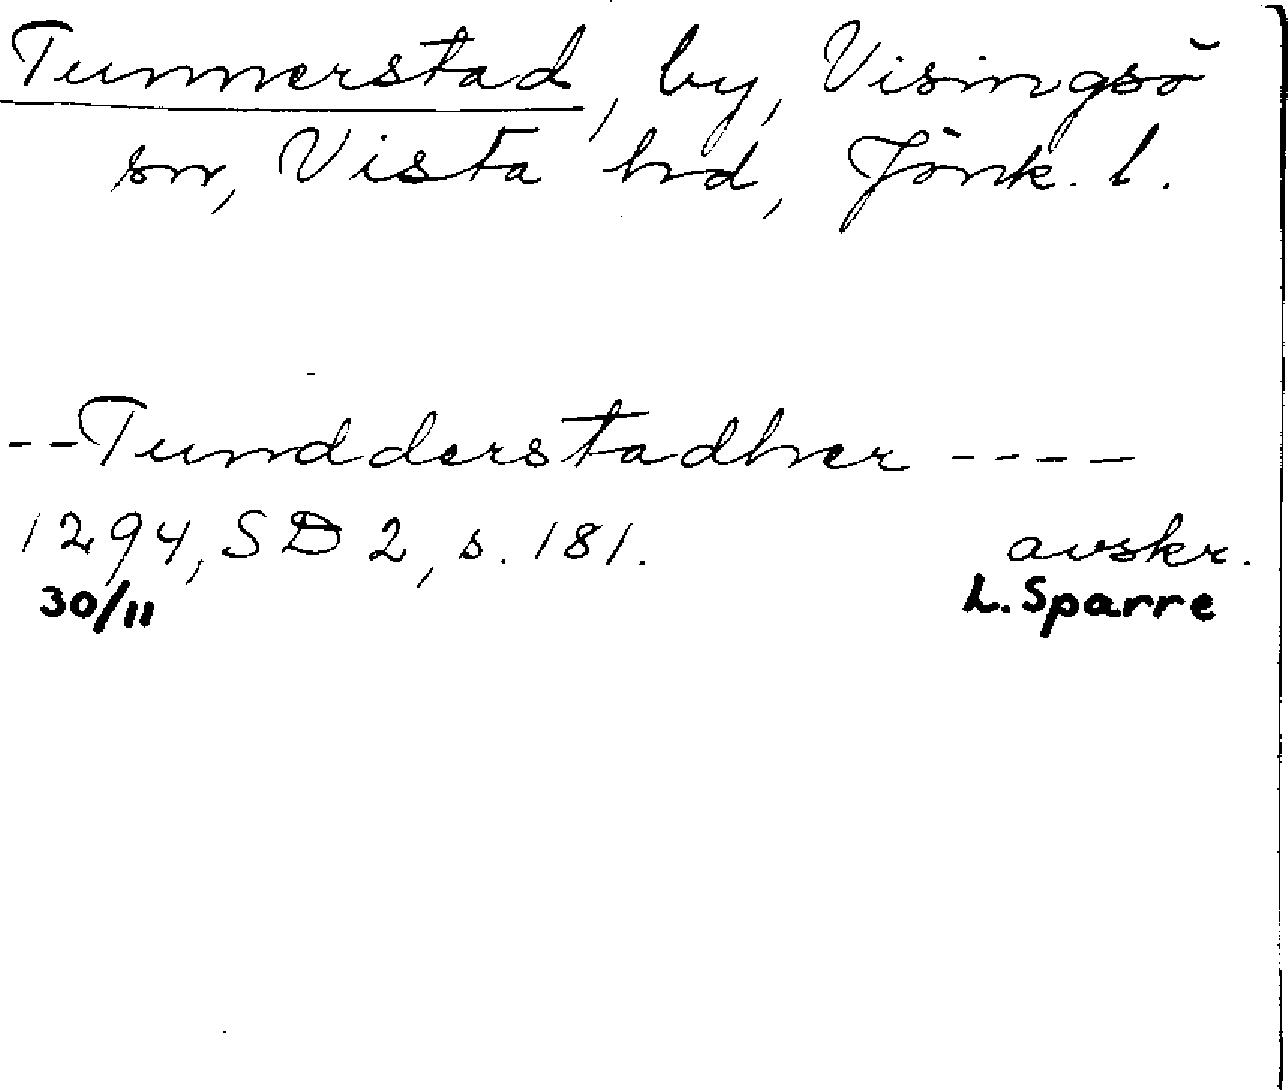 Tunnerstad, by, Visingsö
sn, Vista hd, Jönk. l.
--Tundderstadher ----
1294, SD 2, s. 181. avskr.
30/11 L. Sparre